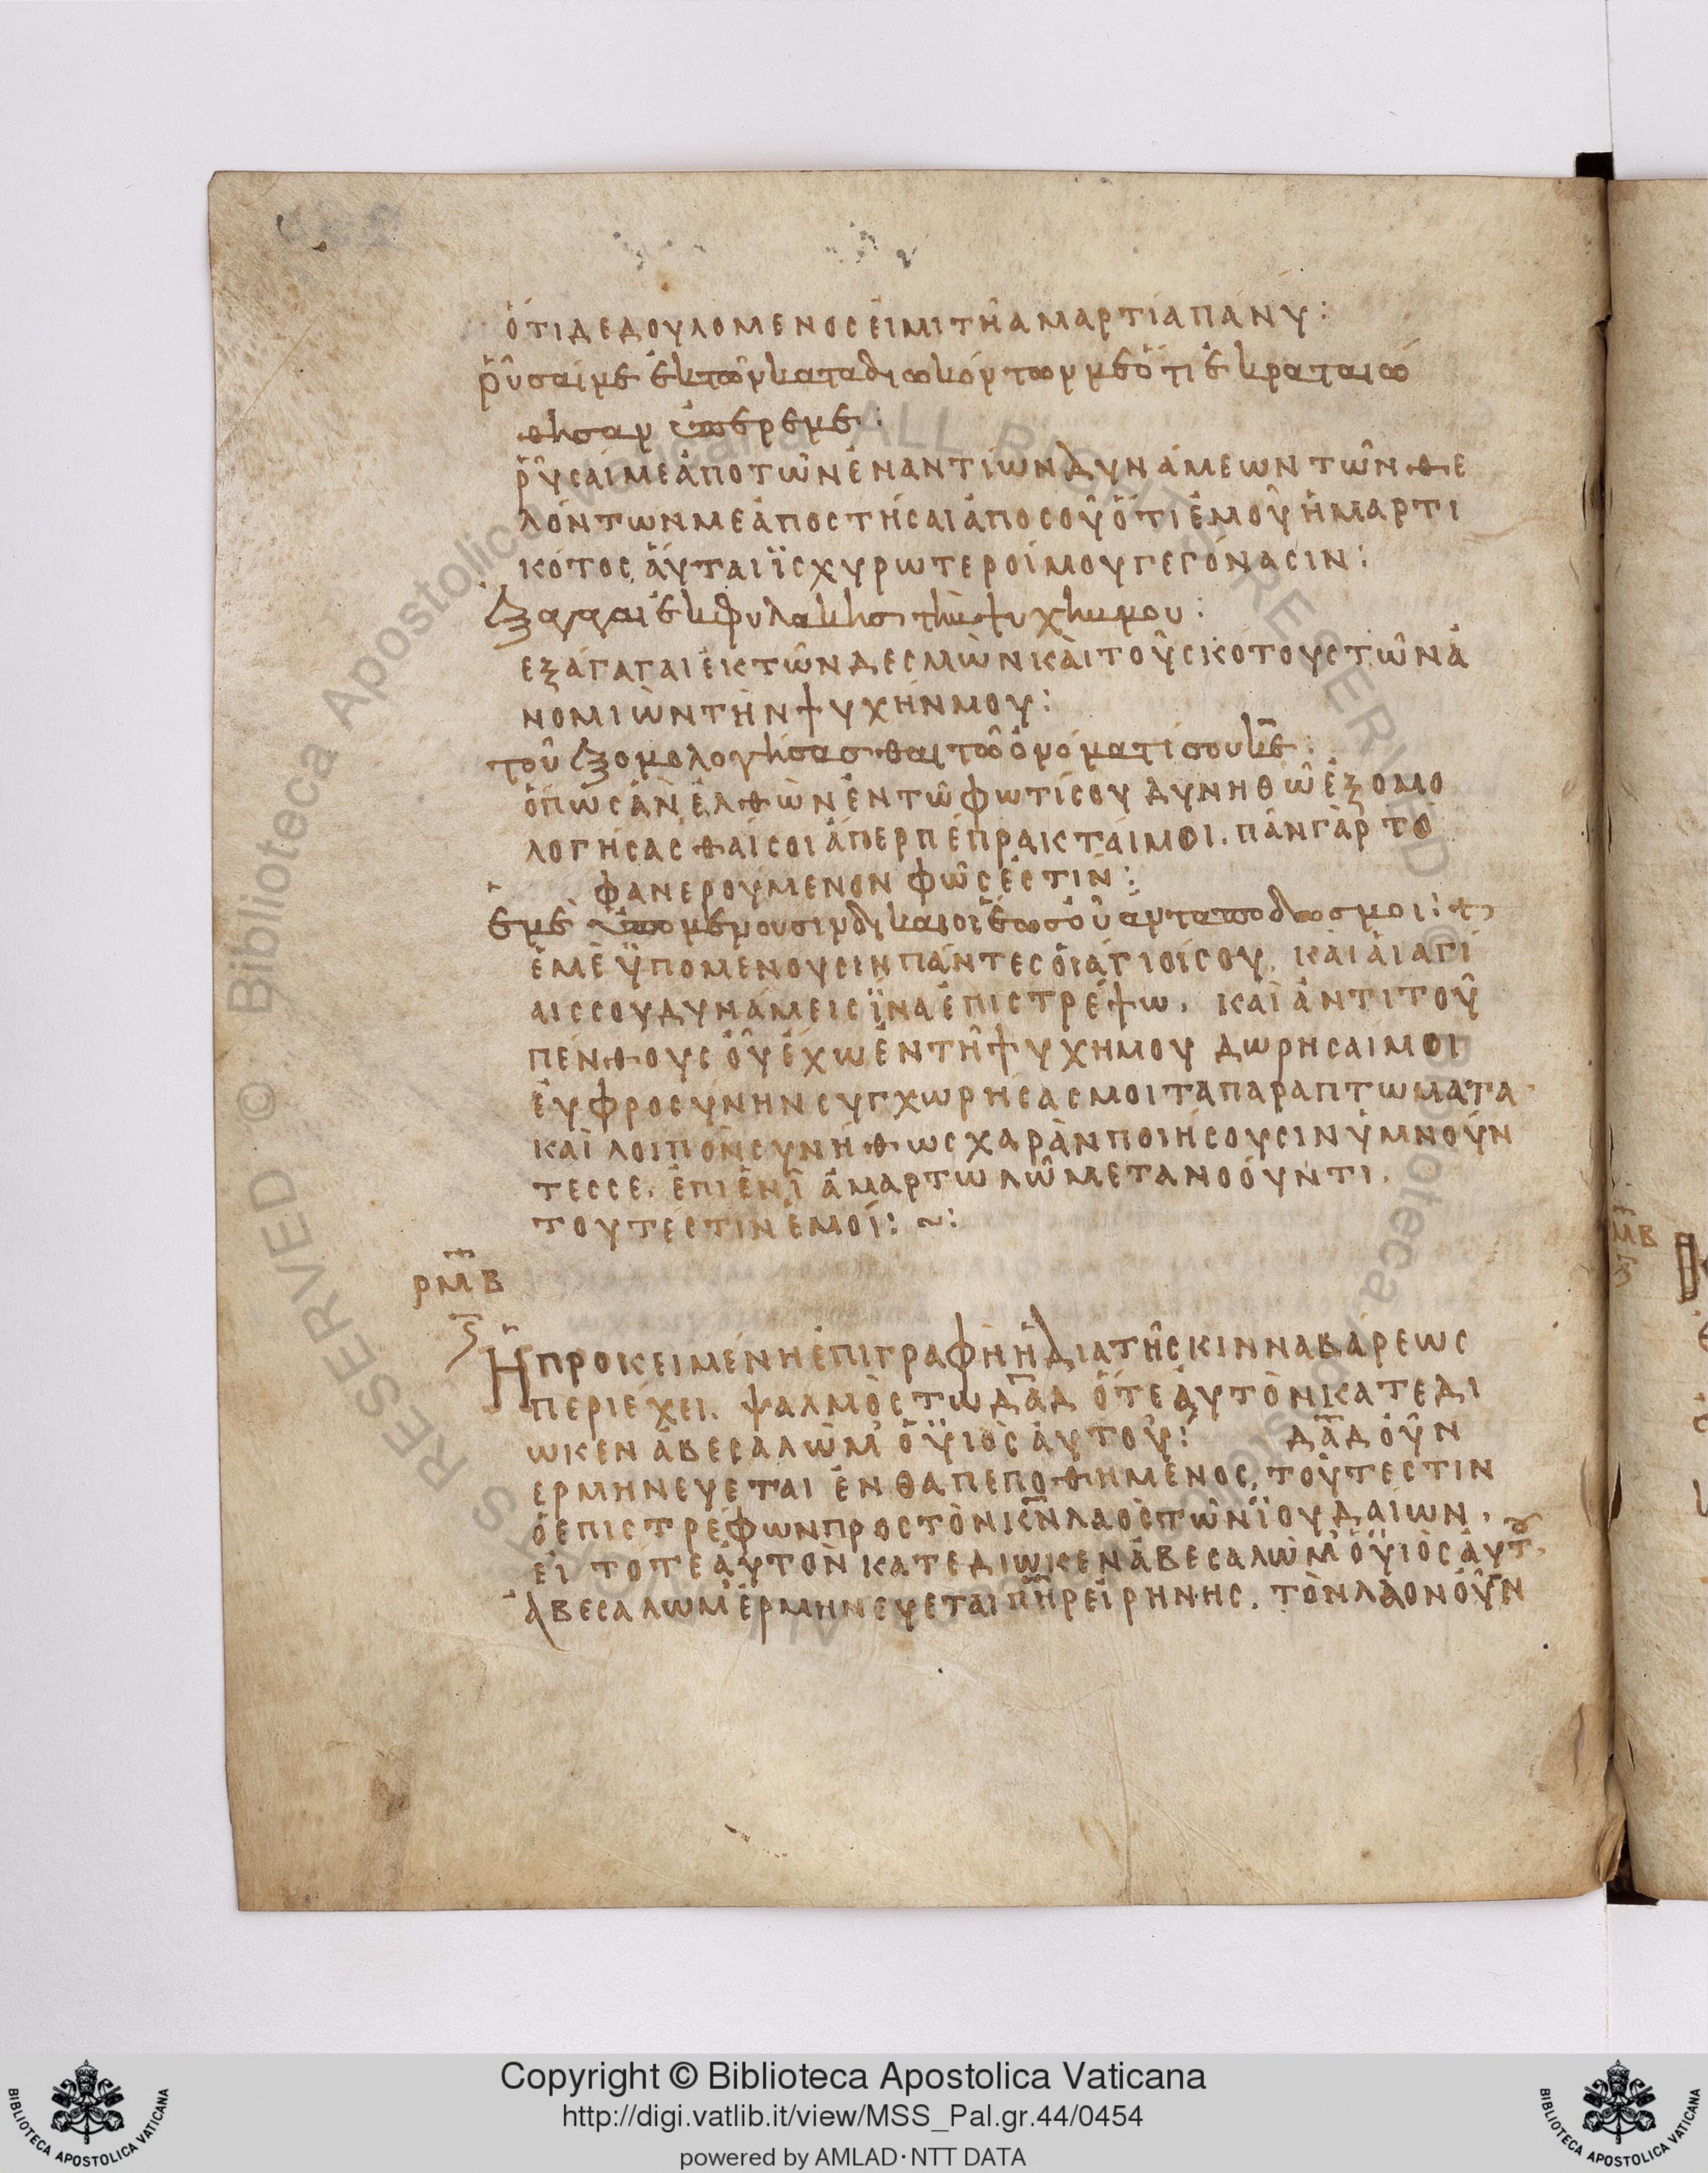 ὅτι δεδουλομενος εἰμι τῆ ἁμαρτία πάνυ:
ῥῦσαί με ἐκ τῶν καταδιωκόντων με ὅτι ἐκραταιώ
θησαν ὑπερ εμε:
ῥῦσαί με ἀπο τῶν ἐναντίων δυνάμεων τῶν θε
λόντων με ἀποστῆσαι ἀπο σοῦ ὅτι ἐμοῦ ἡμαρτι
κότος, ἅυται ϊσχυρωτεροί μου γεγόνασιν:
ἐξάγαγαι ἐκ φυλακῆσ τὴν ψυχήν μου:
εξάγαγαι ἐκ τῶν δεσμὼν κὰι τοῦ σκότους τῶν ἀ
νομιὼν τὴν ψυχήν μου:
τοῦ ἐξομολογήσασθαι τῶ ὀνόματί σου κ̅ε̅:
ὅπως ἀν ἐλθὼν ἐν τῶ φωτί σου δυνηθῶ ἐξομο
λογήσασθαί σοι ἅπερ πέπρακταί μοι. πᾶν γὰρ τὸ
φανερούμενον φῶς ἐστίν:
εμὲ ὑπομένουσιν δίκαιοι ἕωσ οὗ ἀνταποδῶσ μοι:
ἐμὲ ϋπομένουσιν πάντες ὁι ἅγιοί σου, κὰι ἁι ἁγί
αις σου δυνάμεις ϊνα ἐπιστρέψω, καὶ ἀντι τοῦ
πένθους ὁῦ ἔχω ἐν τῆ ψυχή μου δωρησαί μοι
ἐυφροσύνην συγχωρήσας μοι τα παραπτώματα
καὶ λοιπὸν συνήθως χαρὰν ποιήσουσιν ὑμνοῦν
τες σε, ἐπι ἐνῒ ἁμαρτωλῶ μετανοόυντι,
τουτέστιν ἐμοί: ~:
ρ̅μ̅β̅
Ἡ προκειμένη ἐπιγραφὴ ἡ δια τῆς κινναβάρεως
περιέχει, ψαλμὸς τω δ̅α̅δ̅ ὅτε ἀυτὸν κατεδί
ωκεν ἀβεσαλὼμ ὁ ϋιὸς ἀυτοῦ: δ̅α̅δ̅ ὀῦν
ερμηνευεται ἐνθα πεποθημένος, τοῦτεστιν
ὁ επιστρέφων προς τὸν κ̅ν̅ λαὸς τῶν ϊουδαίων,
εἰ τοτε ἀυτὸν κατεδιωκεν ἀβεσαλὼμ ὁ ϋιὸς ἀυτ
ἀβεσαλωμ ἑρμηνευεται π̅η̅ρ εἰρήνης, τὸν λαον ὀῦν
Copyright © Biblioteca Apostolica Vaticana
http://digi.vatlib.it/view/MSS_Pal.gr.44/0454
powered by AMLAD·NTT DATA